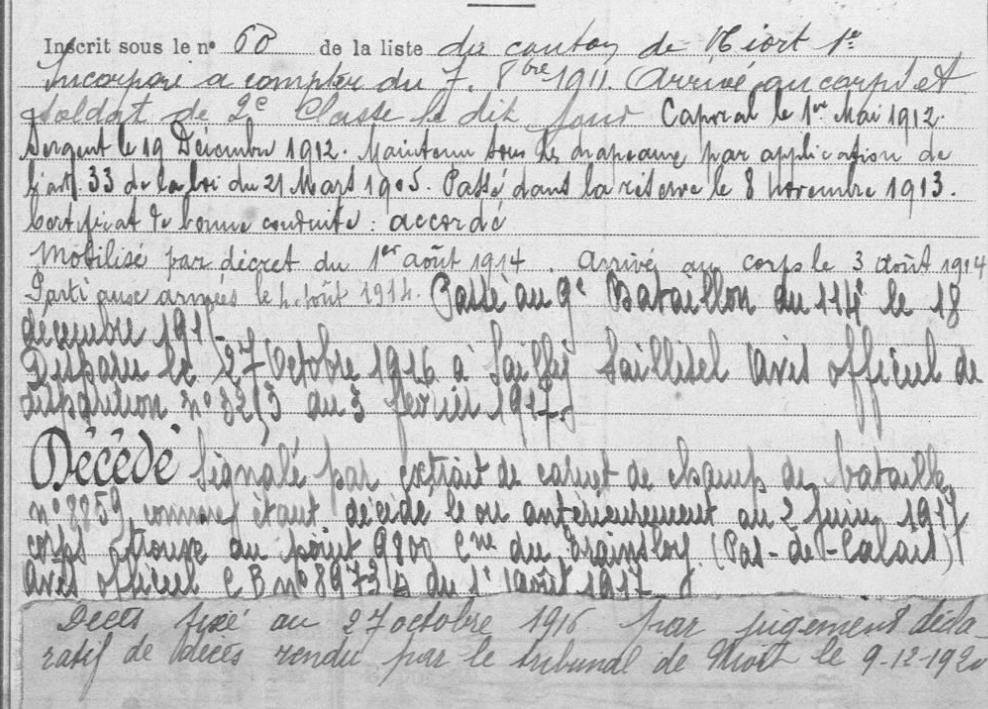 Inscrit sous le n° 60 de la liste du canton de Niort 1er
Incorporé à compter du 7. 8bre 1911. Arrivé au corps et
soldat de 2e Classe le dit jour Caporal le 1er Mai 1912.
Sergent le 19 Décembre 1912. Maintenu sous les drapeaux par application de
l'art. 33 de la loi du 21 Mars 1905. Passé dans la réserve le 8 novembre 1913.
Certificat de bonne conduite : accordé
Mobilisé par décret du 1er août 1914. Arrivé au corps le 3 août 1914
Parti aux armées le août 1914. Passé au 9e Bataillon du 114e le 18
décembre
Disparu le 27 Octobre 1916 à Sailly Saillisel Avis officiel de
disparition n° du 3 février 1917.
Décédé Signalé par extrait de carnet de champ de bataille
n° 8259 comme étant décédé le ou antérieurement au 2 Juin 1917
corps trouvé au point 9800 Cne du (Pas-de-Calais)
Avis officiel C B n° du 1er Août 1917
Décès fixé au 27 octobre 1916 par jugement décla-
ratif de décès rendu par le tribunal de Niort le 9-12-1920